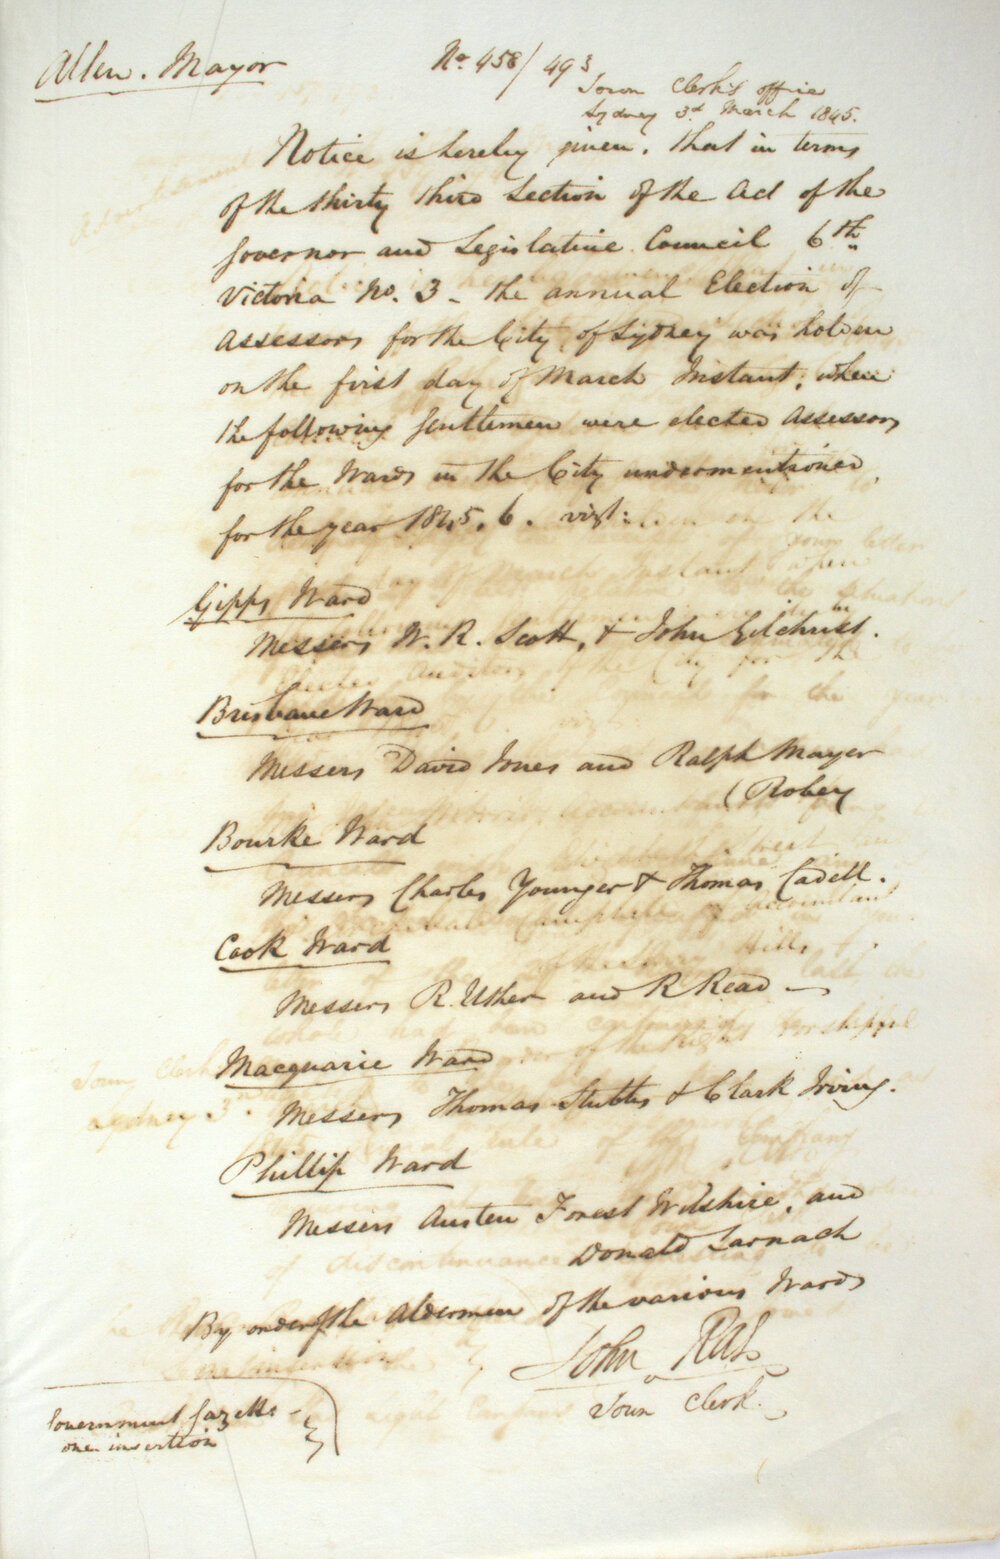 Allen. Mayor
No. 458/493
Town Clerk's office
Sydney 3d March 1845.
Notice is hereby given, that in terms
of the thirty third Section of the Act of the
Governor and Legislative Council 6th
Victoria No. 3 - the annual Election of
Assessors for the City of Sydney was holden
on the first day of March Instant, when
the following Gentlemen were elected Assessors
for the Wards in the City undermentioned,
for the year 1845.6. vizt:
Gipps Ward
Messers W. R. Scott, & John Gilchrist.
Brisbane Ward
Messers David Jones and Ralph Mayer
(Robey
Bourke Ward
Messers Charles Younger & Thomas Cadell.
Cook Ward
Messers R. Usher and R Read —
Macquarie Ward
Messers Thomas Stubbs & Clark Irving.
Phillip Ward
Messers Austen Forest Wilshire, and
Donald Larnach
By order of the Aldermen of the various Wards
John Rae
Town Clerk.
Government Gazette -
one insertion